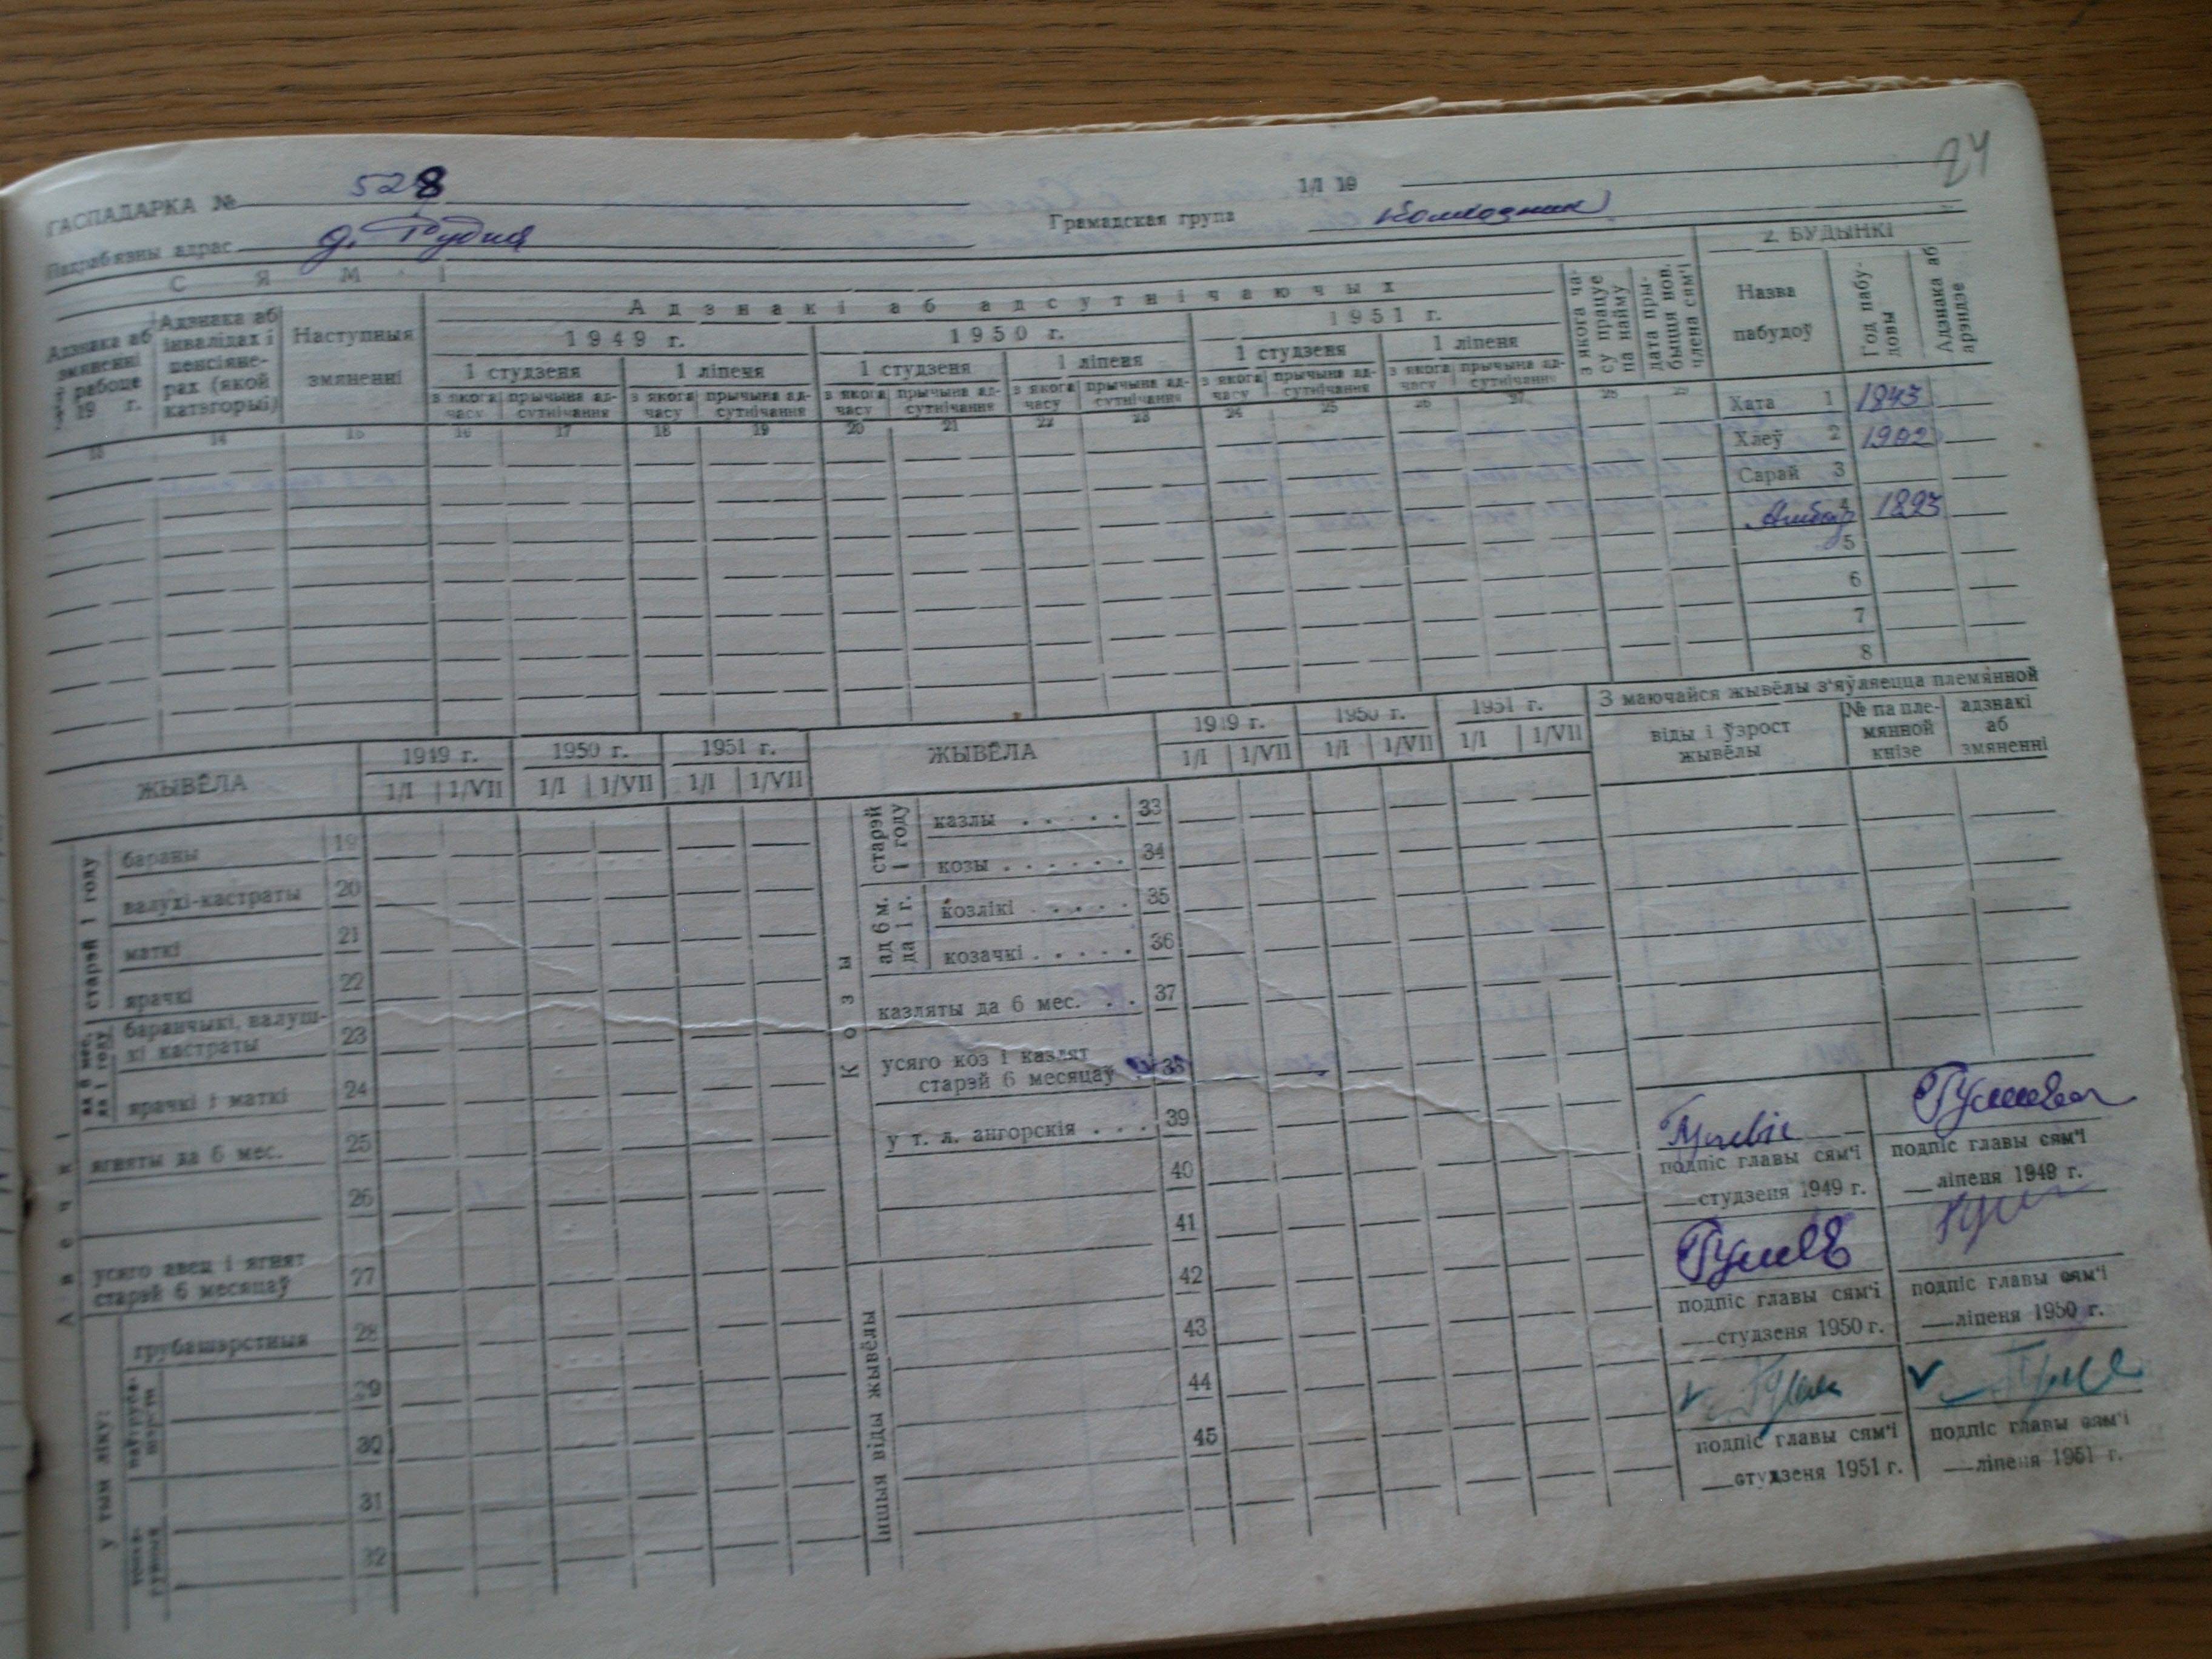 24
ГАСПАДАРКА № 528
1/I 19
Пахраб'язны адрас д. Рудня
Грамадская група Колхозник
С Я М ' І
2. БУДЫНКІ
Адзнакі аб адсутнічаючых
Адзнака аб змяненні рабоце 19 г.
Адзнака аб інвалідах і пенсіяне-рах (якой катэгорыі)
Наступныя змяненні
1949 г. 1950 г. 1951 г.
1 студзеня 1 ліпеня 1 студзеня 1 ліпеня 1 студзеня 1 ліпеня
з якога часу прычына ад-сутнічання з якога часу прычына ад-сутнічання з якога часу прычына ад-сутнічання з якога часу прычына ад-сутнічання з якога часу прычына ад-сутнічання з якога часу прычына ад-сутнічання
з якога ча-су працуе па найму
дата пры-быцця нов. члена сям'і
Назва пабудоў
Год пабу-довы
Адзнака аб арэндзе
13 14 15 16 17 18 19 20 21 22 23 24 25 26 27 28 29
Хата 1 1843
Хлеў 2 1902
Сарай 3
Амбар 4 1893
5
6
7
8
ЖЫВЁЛА
1949 г. 1950 г. 1951 г.
1/I 1/VII 1/I 1/VII 1/I 1/VII
Авечкі
старэй 1 году
бараны 19
валухі-кастраты 20
маткі 21
ярачкі 22
ад 6 мес. да 1 году
баранчыкі, валуш-
кі кастраты 23
ярачкі і маткі 24
ягняты да 6 мес. 25
26
усяго авец і ягнят
старэй 6 месяцаў 27
у тым ліку:
грубашэрстныя 28
29
30
31
32
ЖЫВЁЛА
1949 г. 1950 г. 1951 г.
1/I 1/VII 1/I 1/VII 1/I 1/VII
Козы
старэй 1 году
казлы . . . . . 33
козы . . . . . . 34
ад 6 м. да 1 г.
козлікі . . . . . 35
козачкі . . . . . 36
казляты да 6 мес. . . 37
усяго коз і казлят
старэй 6 месяцаў 38
у т. л. ангорскія . . . 39
40
41
Іншыя віды жывёлы
42
43
44
45
З маючайся жывёлы з'яўляецца племянной
віды і ўзрост жывёлы
№ па пле-мянной кнізе
адзнакі аб змяненні
подпіс главы сям'і подпіс главы сям'і
студзеня 1949 г. ліпеня 1949 г.
подпіс главы сям'і подпіс главы сям'і
студзеня 1950 г. ліпеня 1950 г.
подпіс главы сям'і подпіс главы сям'і
студзеня 1951 г. ліпеня 1951 г.